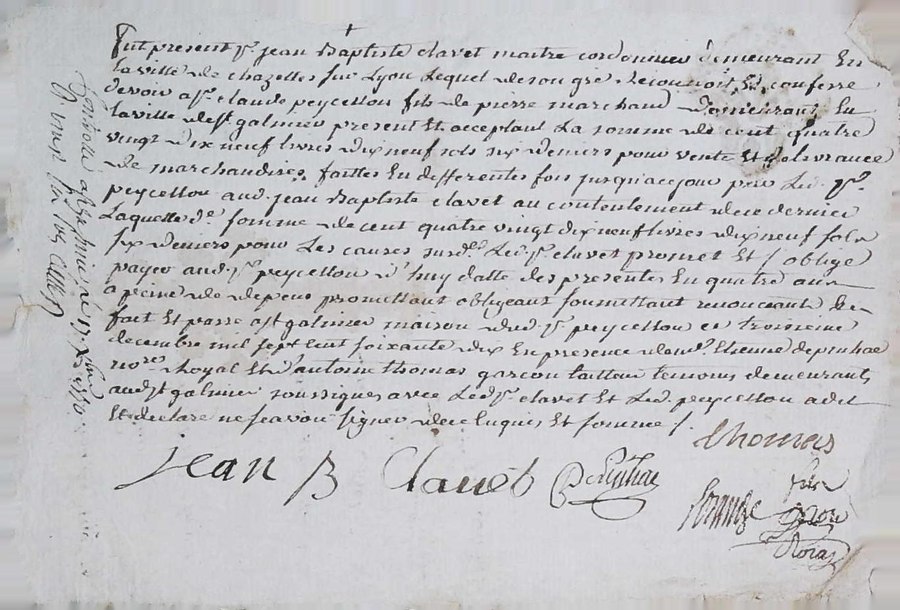 fut present Sr. jean Baptiste clavet maitre cordonnier demeurant En
la ville de chazelles sur Lyon Lequel de son gre Reconnoit Et confesse
devoir a Sr. claude peycellon fils de pierre marchand Demeurant En
la ville de st galmier present Et acceptant La somme de cent quatre
vingt dix neuf livres dix neuf sols six deniers pour vente Et delivrance
de marchandises faittes En differentes fois jusqu'a ce jour par Led. Sr.
peycellon aud. jean Baptiste clavet au contentement de ce dernier
Laquelle de. somme de cent quatre vingt dix neuf livres dix neuf sols
six deniers pour Les causes susd. Led. Sr. clavet promet Et s'oblige
payer aud. Sr. peycellon d'huy datte des presentes En quatre ans
a peine de depens promettant obligeant soumettant renonceant &c
fait Et passe a st galmier maison dud. Sr. peycellon Le troisieme
decembre mil sept cent soixante dix En presence de me. Etienne depinhac
nore. Royal Et d'antoine thomas garcon tailleur temoins demeurants
aud. st galmier soussignes avec Led. Sr. clavet Et Led. peycellon a dit
Et declare ne scavoir signer de ce Enquis Et somme /.
thomas
jean B Clavet Depinhac
no
Royal
Controlle a st galmier Le 13 Xbre 1770